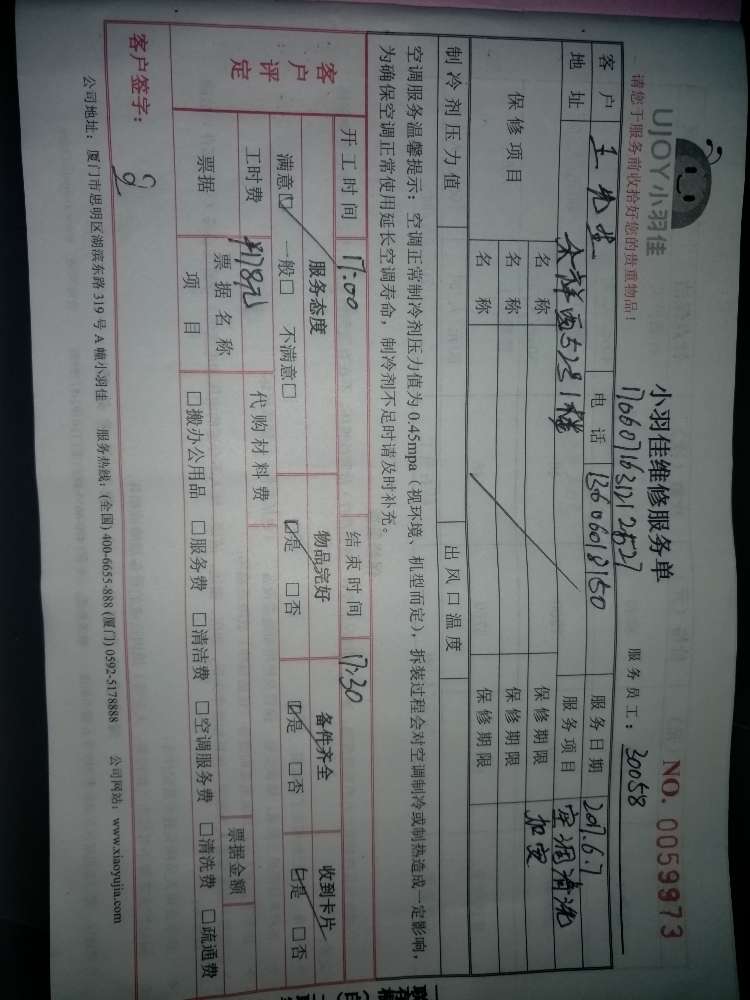 UJOY小羽佳
小羽佳维修服务单
NO. 0059973
请您于服务前收拾好您的贵重物品!
17060716312112527
服务员工: 30058
客户 王先生 电话 13606018150 服务日期 2017.6.7
地址 服务项目 空调清洗
保修项目 名称 保修期限 加安
名称 保修期限
名称 保修期限
制冷剂压力值 出风口温度
空调服务温馨提示: 空调正常制冷剂压力值为 0.45mpa (视环境、机型而定), 拆装过程会对空调制冷或制热造成一定影响,
为确保空调正常使用延长空调寿命, 制冷剂不足时请及时补充。
开工时间 17:00 结束时间 17:30
客户评定 服务态度 物品完好 备件齐全 收到卡片
满意☑ 一般□ 不满意□ ☑是 □否 ☑是 □否 ☑是 □否
工时费 178元 代购材料费
票据 票据名称 票据金额
项目 □搬办公用品 □服务费 □清洁费 □空调服务费 □清洗费 □疏通费
客户签字:
公司地址: 厦门市思明区湖滨东路 319 号 A 幢小羽佳 服务热线: (全国) 400-6655-888 (厦门) 0592-5178888 公司网站: www.xiaoyujia.com